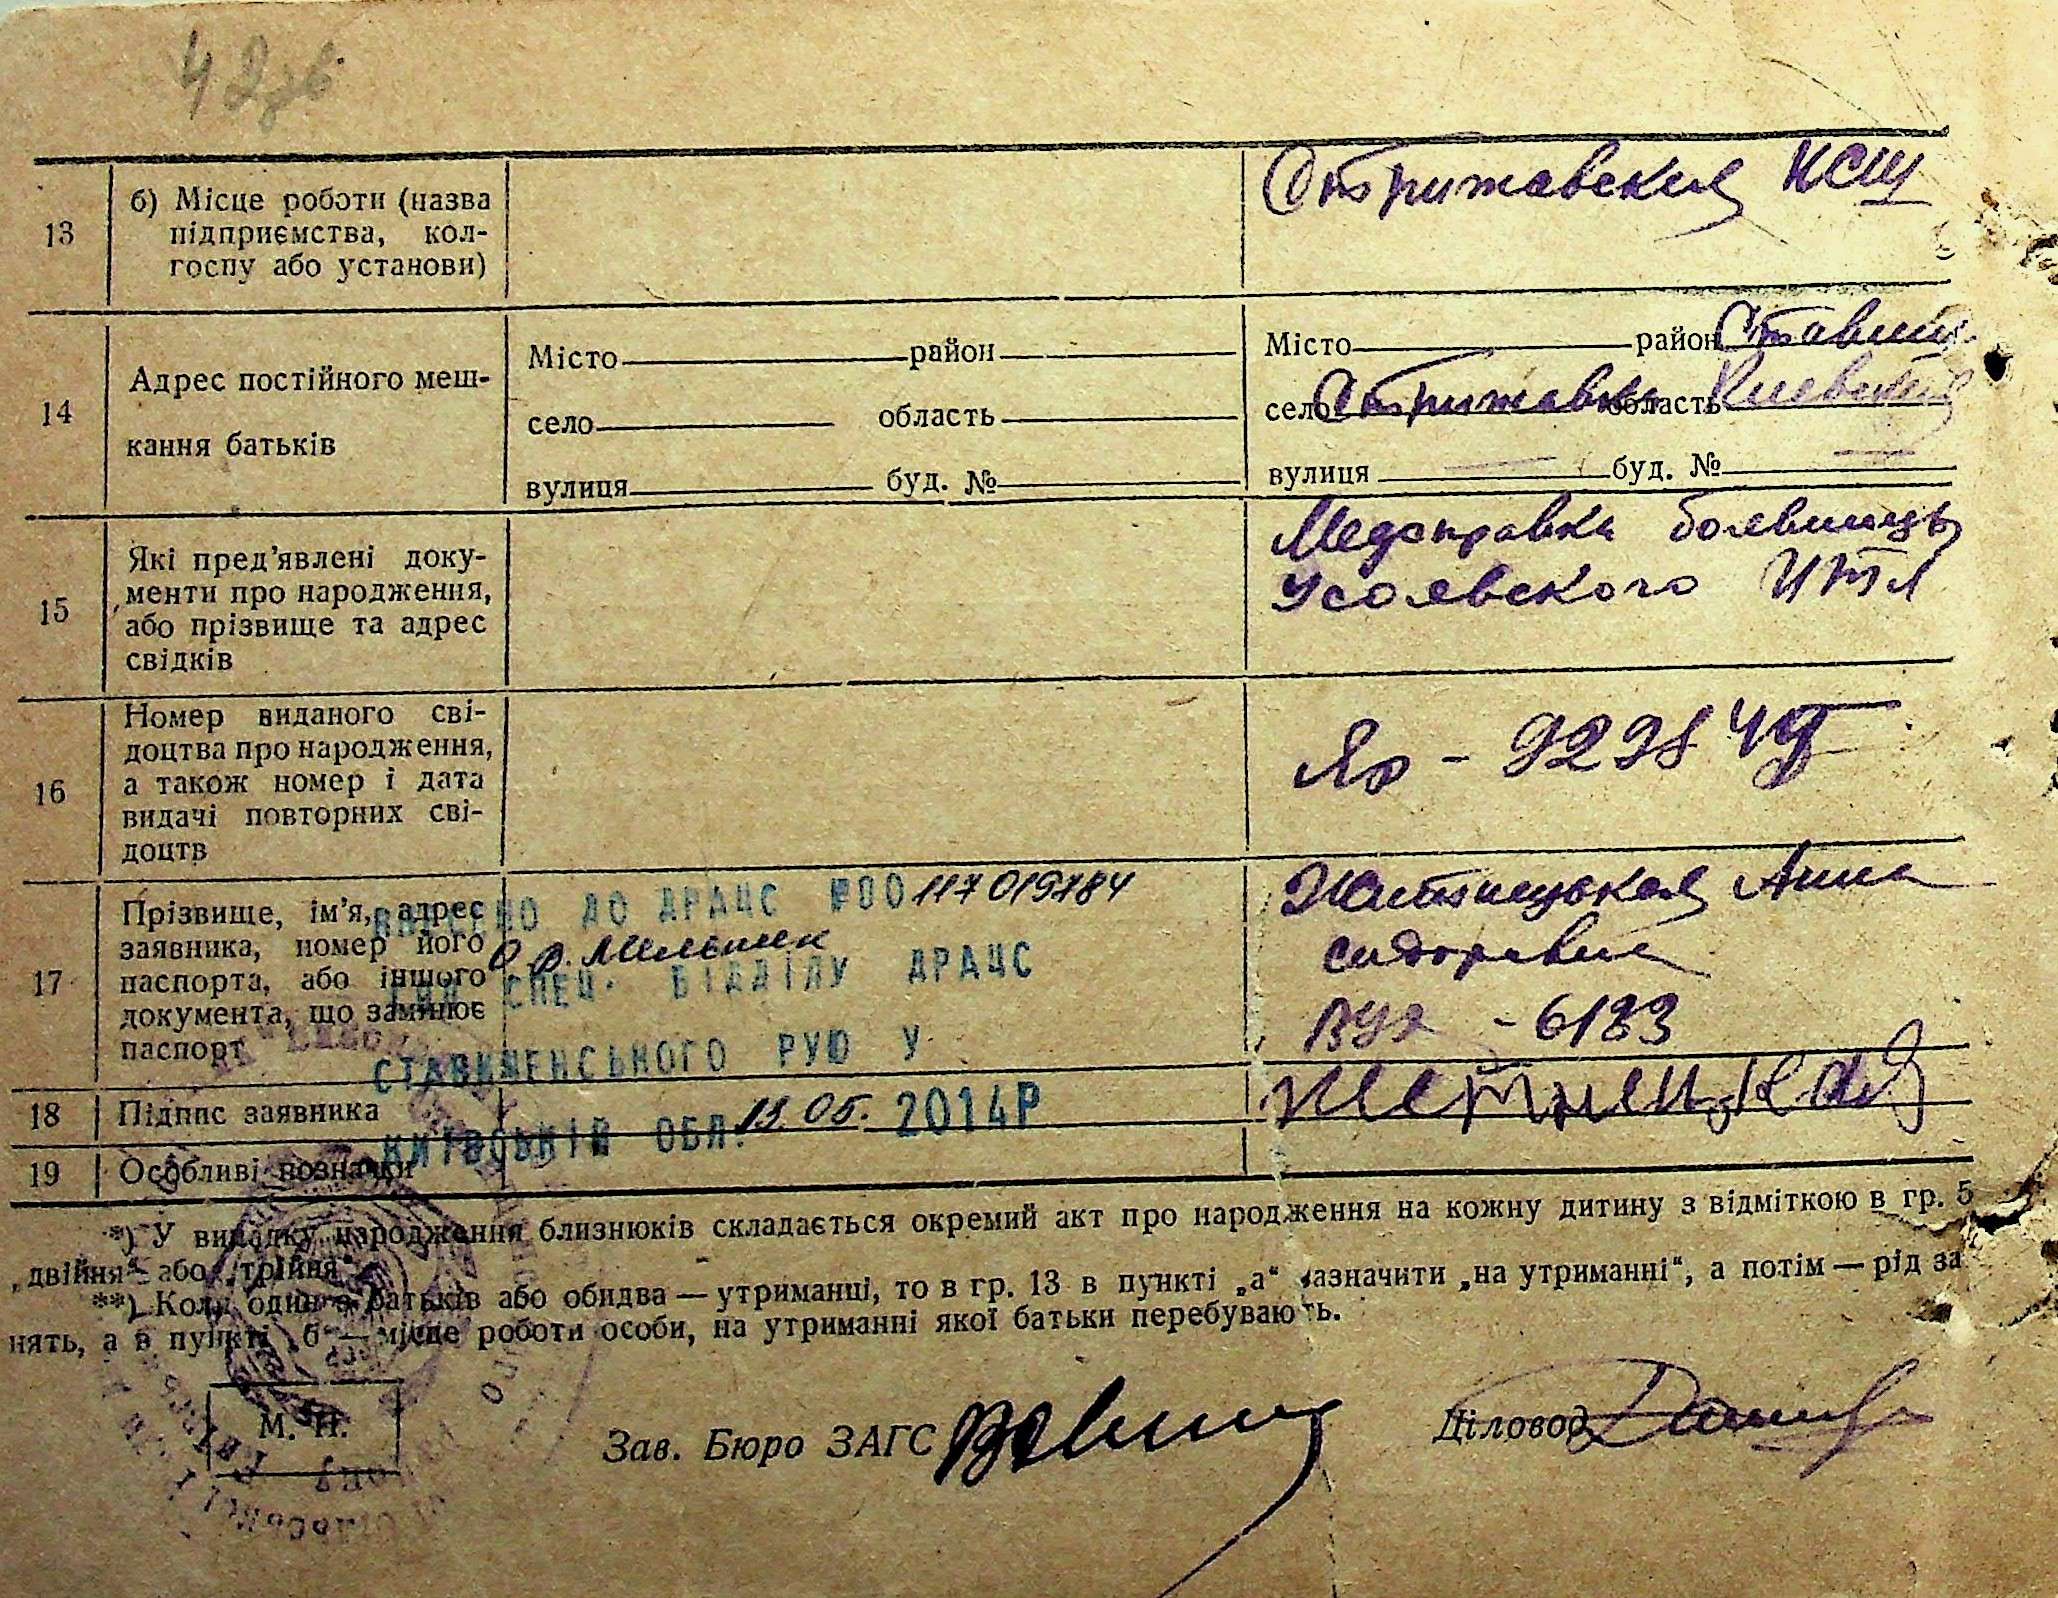 42зв.
13
б) Місце роботи (назва
підприємства, кол-
госпу або установи)
Стрижавская НСШ
14
Адрес постійного меш-
кання батьків
Місто район
село область
вулиця буд. №
Місто район Ставищ.
село Стрижавка область Киевская
вулиця — буд. № —
15
Які пред'явлені доку-
менти про народження,
або прізвище та адрес
свідків
Медсправка
Усольского ИТЛ
16
Номер виданого сві-
доцтва про народження,
а також номер і дата
видачі повторних сві-
доцтв
17
Прізвище, ім'я, адрес
заявника, номер його
паспорта, або іншого
документа, що замінює
паспорт
Анна
Сидоровна
- 6183
ВНЕСЕНО ДО ДРАЦС №00117019784
Мельник
СПЕЦ. ВІДДІЛУ ДРАЦС
СТАВИЩЕНСЬКОГО РУЮ У
КИЇВСЬКІЙ ОБЛ. 13.05. 2014Р
18
Підпис заявника
19
Особливі позначки
*) У випадку народження близнюків складається окремий акт про народження на кожну дитину з відміткою в гр. 5
„двійня" або „трійня".
**) Коли один з батьків або обидва — утриманці, то в гр. 13 в пункті „а" зазначити „на утриманні", а потім — рід за
нять, а в пункті „б" — місце роботи особи, на утриманні якої батьки перебувають.
М. П.
Зав. Бюро ЗАГС
Діловод